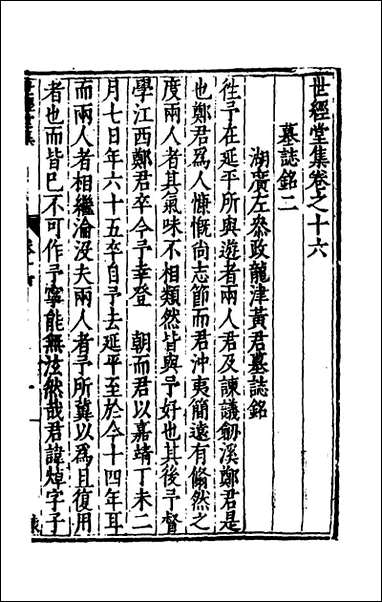 世經堂集卷之十六
墓誌銘二
湖廣左叅政龍津黃君墓誌銘
徃予在延平所與遊者兩人君及諫議劒溪鄭君是
也鄭君爲人慷慨尚志節而君沖夷簡遠有翛然之
度兩人者其氣味不相類然皆與予好也其後予督
學江西鄭君卒今予幸登　朝而君以嘉靖丁未二
月七日年六十五卒自予去延平至於今十四年耳
而兩人者相繼淪沒夫兩人者予所冀以爲且復用
者也而皆已不可作予寧能無泫然哉君諱焯字子